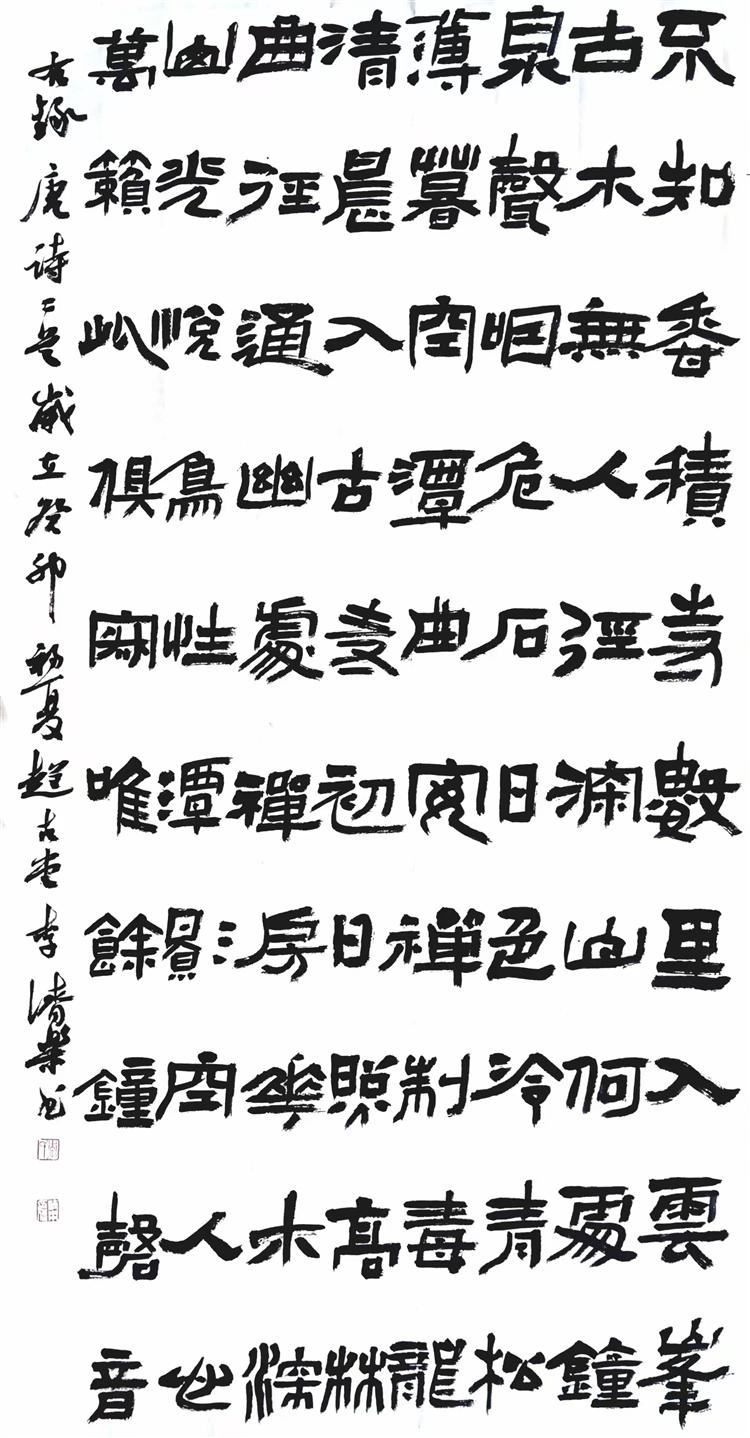 不知香積寺數里入雲峯
古木無人徑深山何處鐘
泉聲咽危石日色冷青松
薄暮空潭曲安禪制毒龍
清晨入古寺初日照高林
曲徑通幽處禪房花木深
山光悅鳥性潭影空人心
萬籟此俱寂唯餘鐘磬音
右錄唐诗二首歲在癸卯初夏趙古堂李清榮書